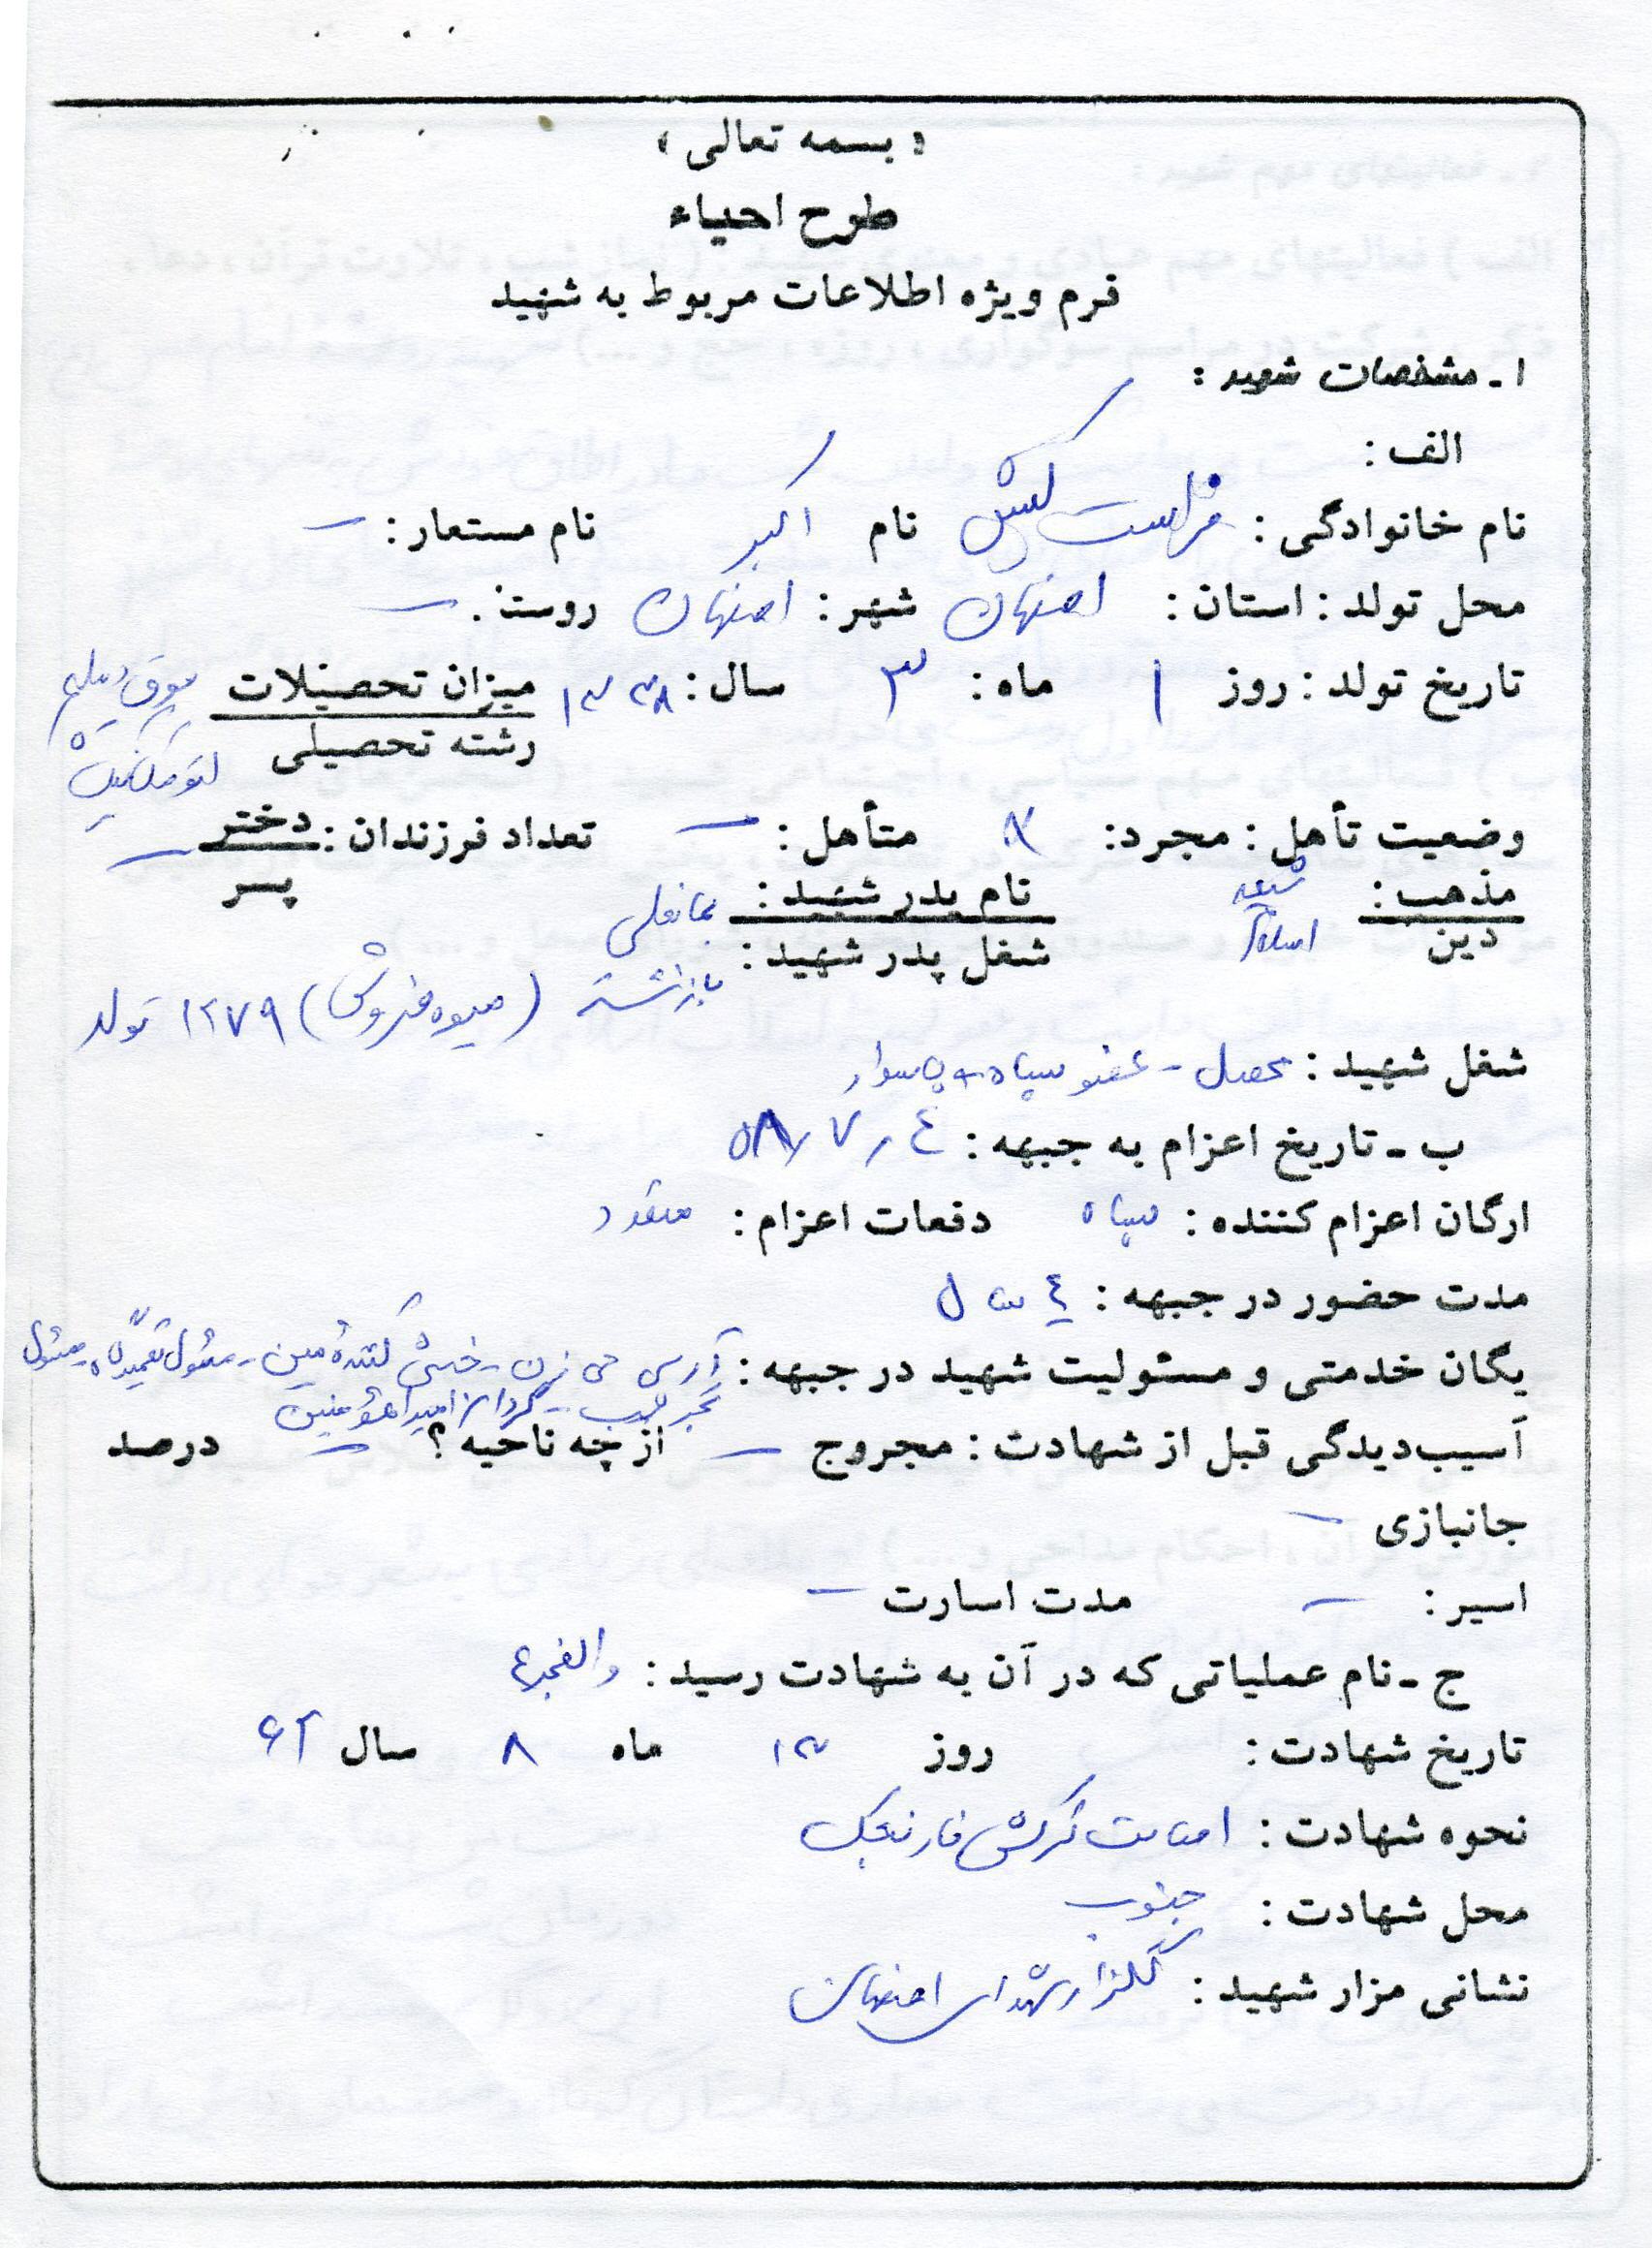 « بسمه تعالی »
طرح احیاء
فرم ویژه اطلاعات مربوط به شهید
۱ ـ مشخصات شهید :
الف :
نام خانوادگی : فراست کیش نام اکبر نام مستعار : —
محل تولد : استان : اصفهان شهر : اصفهان روستا . —
تاریخ تولد : روز ۱ ماه : ۳ سال : ۱۳۳۸ میزان تحصیلات فوق دیپلم
رشته تحصیلی اتومکانیک
وضعیت تأهل : مجرد : × متأهل : — تعداد فرزندان : دختر —
پسر
مذهب : شیعه نام پدر شهید :
دین اسلام شغل پدر شهید : بازنشسته (میوه فروش) ۱۲۷۹ تولد
شغل شهید : محصل - عضو سپاه - پاسدار
ب ـ تاریخ اعزام به جبهه : ٤ ر ۷ ر ۵۸
ارگان اعزام کننده : سپاه دفعات اعزام : متعدد
مدت حضور در جبهه : ٤ سال
یگان خدمتی و مسئولیت شهید در جبهه : آر پی جی زن - خنثی کننده مین - مسئول تعمیرگاه - مسئول
تخریب - گردان امیرالمؤمنین
آسیب‌دیدگی قبل از شهادت : مجروح — از چه ناحیه ؟ — درصد
جانبازی —
اسیر : — مدت اسارت —
ج ـ نام عملیاتی که در آن به شهادت رسید : والفجر ٤
تاریخ شهادت : روز ۱۳ ماه ۸ سال ۶۲
نحوه شهادت : اصابت ترکش نارنجک
محل شهادت : جنوب
نشانی مزار شهید : گلزار شهدای اصفهان